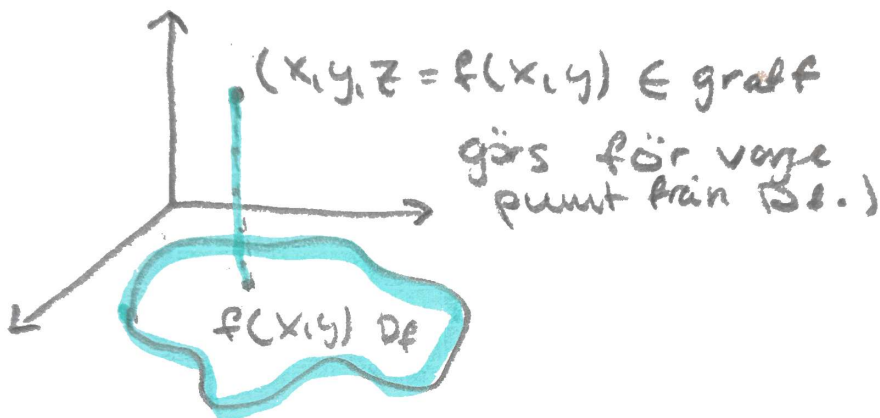 (x,y,z = f(x,y) ∈ graf
görs för varje
punkt från Df.)
f(x,y) Df